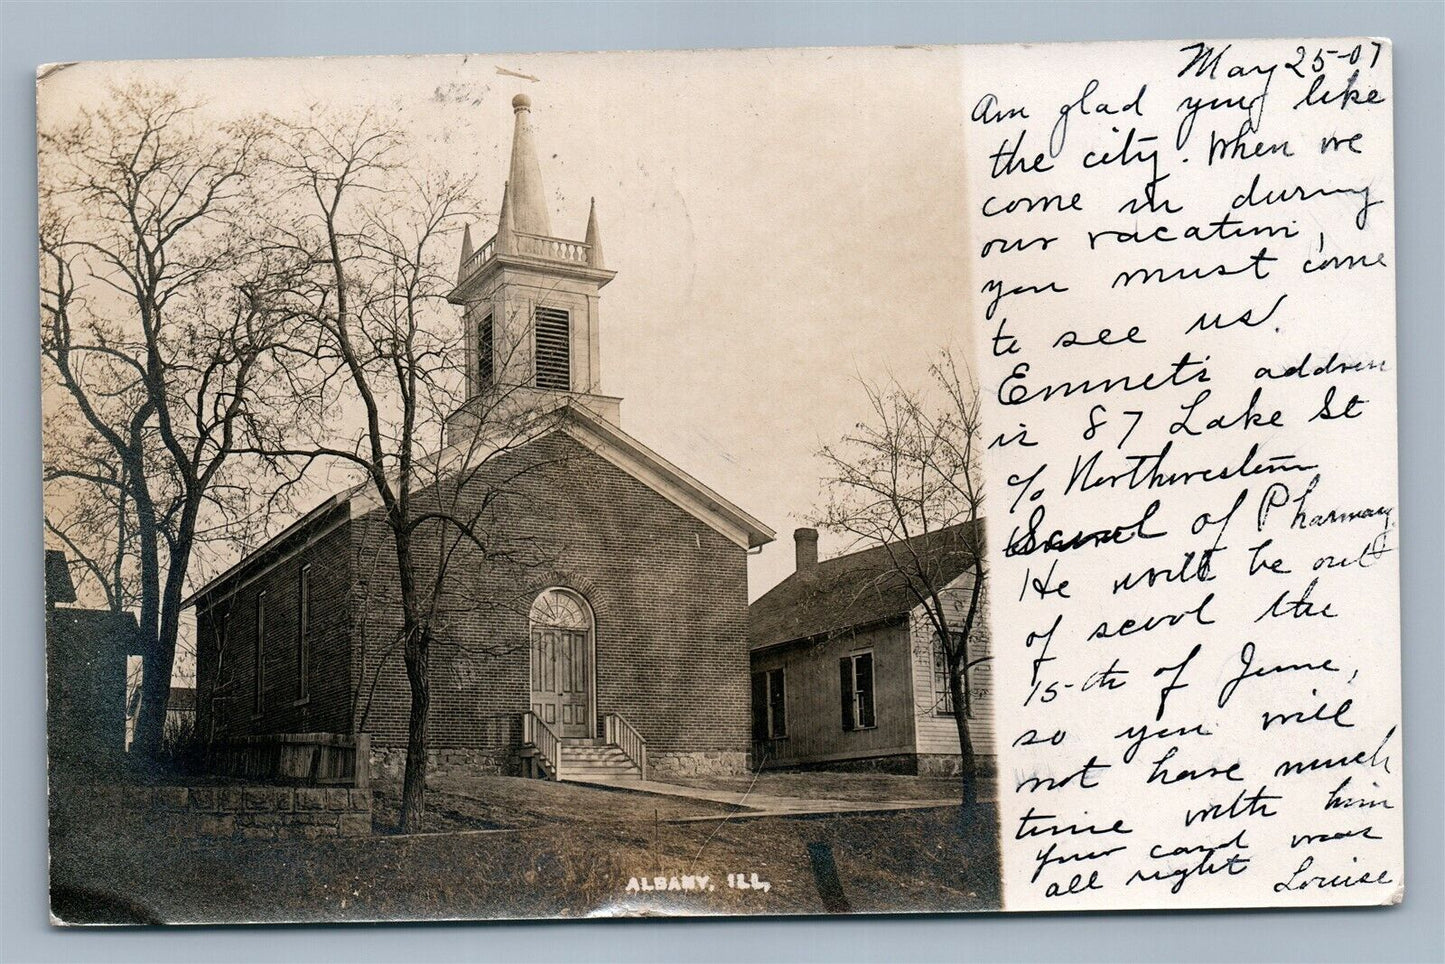 May 25-07
Am glad you like
the city. When we
come in during
our vacation,
you must come
to see us.
Emmets address
is 87 Lake St
c/o Northwestern
School of Pharmacy
He will be out
of school the
15-th of June,
so you will
not have much
time with him
Your card was
all right Louise
ALBANY, ILL,